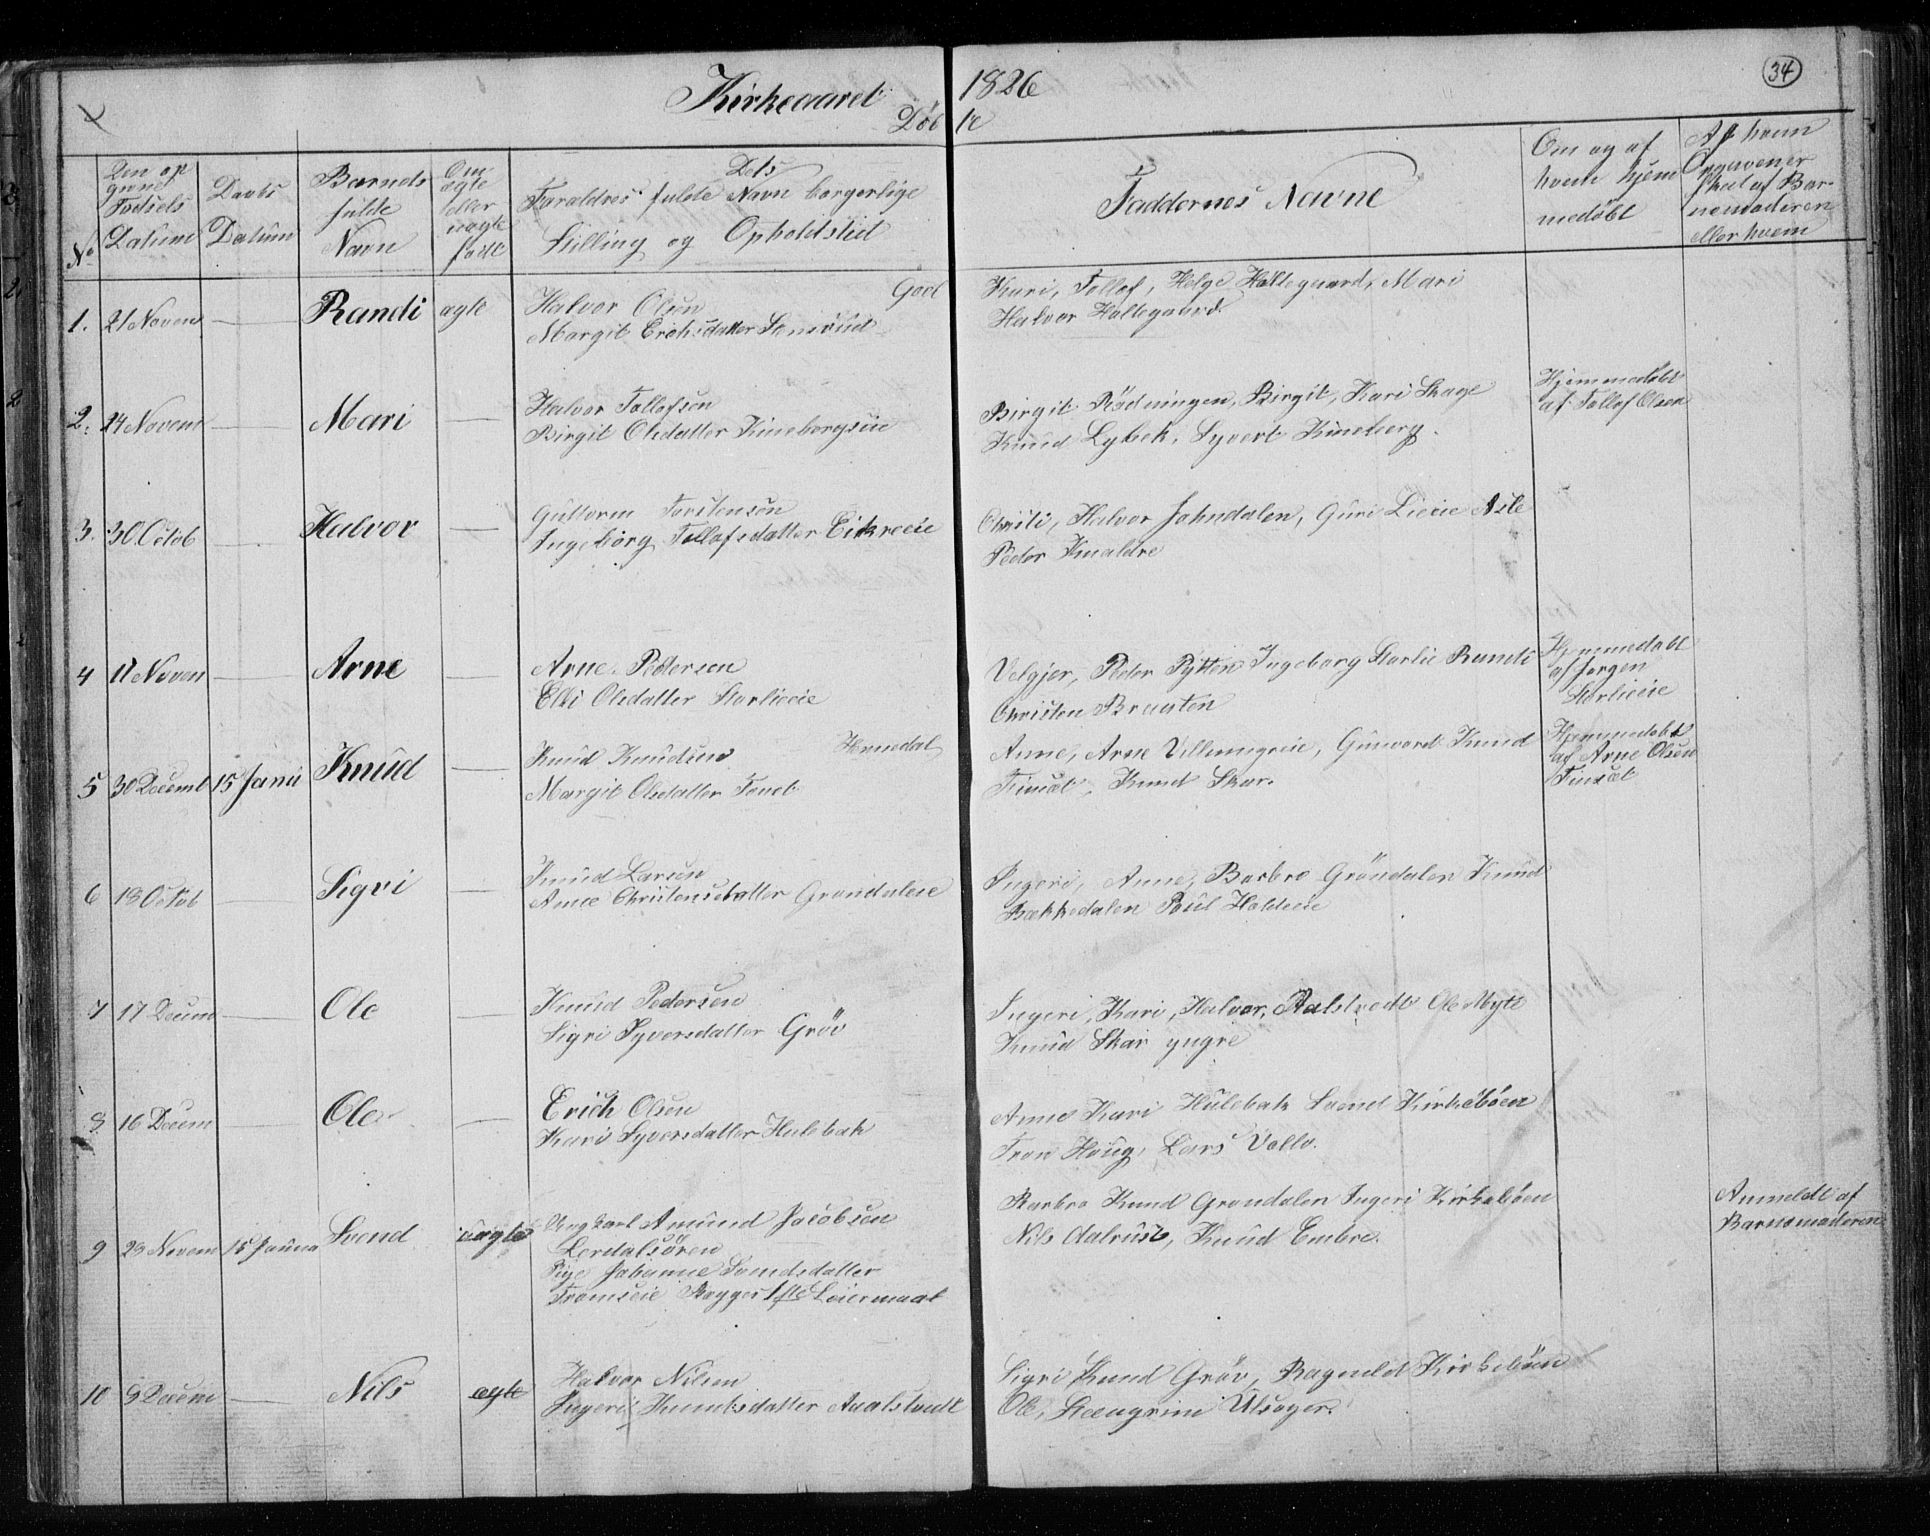 Kirkeaaret 1826
34
Døbte
No
Den op
givne
Fødsels
Datum
Daabs
Datum
Barnets
fulde
Navn
Om
ægte
eller
uægte
født
Dets
Foraldres fulde Navn borgerlige
Stilling og Opholdsted
Faddernes Navne
Om og af
hvem hjem
medøbt
Af hvem
Opgaven er
skeet af Bar-
nemoderen
eller hvem
Goel
1. 21 Novem — Randi ægte Halvor Olsen
Margit Erchsdatter
Kari, Tollef, Helge Haltegaard, Mari
Halvor Haltegaard.
2. 24 Novem — Mari — Halvor Tollofsen
Birgit Olsdatter Kinebergseie
Birgit Rødningen, Birgit, Kari Skage
Knud Lybek, Syvert Kineberg.
Hjemmedøbt
af Tollof Olsen
3. 30 Octob — Halvor — Guttorm Torstensen
Ingeborg Tollofsdatter Eikreeie
Christi, Halvor Jahndalen, Guri Lieeie Asle
Peder Knaldre
4 11 Noven — Arne — Arne Pedersen
Elki Olsdatter Storlieeie
Velgjer, Peder Pytten Ingeborg Storlie Randi
Christen Braaten
Hjemmedøbt
af Jorgen
Storlieeie
Hemsedal
5 30 Decemb 15 Janu Knud — Knud Knudsen
Margit Olsdatter
Anne, Arne Gunvord Knud
Finsæt, Knud Skar.
Hjemmedøbt
af Arne Olsen
Finsæt
6 18 Octob — Sigri — Knud Larsen
Anne Christensdatter Grøndaleie
Ingeri, Anne, Barbro Gröndalen Knud
Bækkedalen Poul Holdeeie
7 17 Decem — Ole — Knud Pedersen
Sigri Syversdatter Grøv
Ingeri, Kari, Halvor, Ole Myte
Knud Skar yngre
8 16 Decem — Ole — Erich Olsen
Kari Syversdatter Hulebak
Anne Kari Hulebak Svend Kirkebøen
Tron Haug, Lars Vollo.
9 29 Novem 15 Janua Svend uægte Ungkarl Amund Jacobsen
Lerdalsören
Pige Johanne
Tromseie Begges 1ste Leiermaal
Barbro Knud Grøndalen Ingeri Kirkebøen
Nils Knud Embre.
Anmeldt af
Barnemoderen
10 9 Decem — Nils ægte Halvor Nilsen
Ingeri Knudsdatter
Sigri Knud Grøv, Ragnild Kirkebøen
Ole, Steengrim Ulsager.